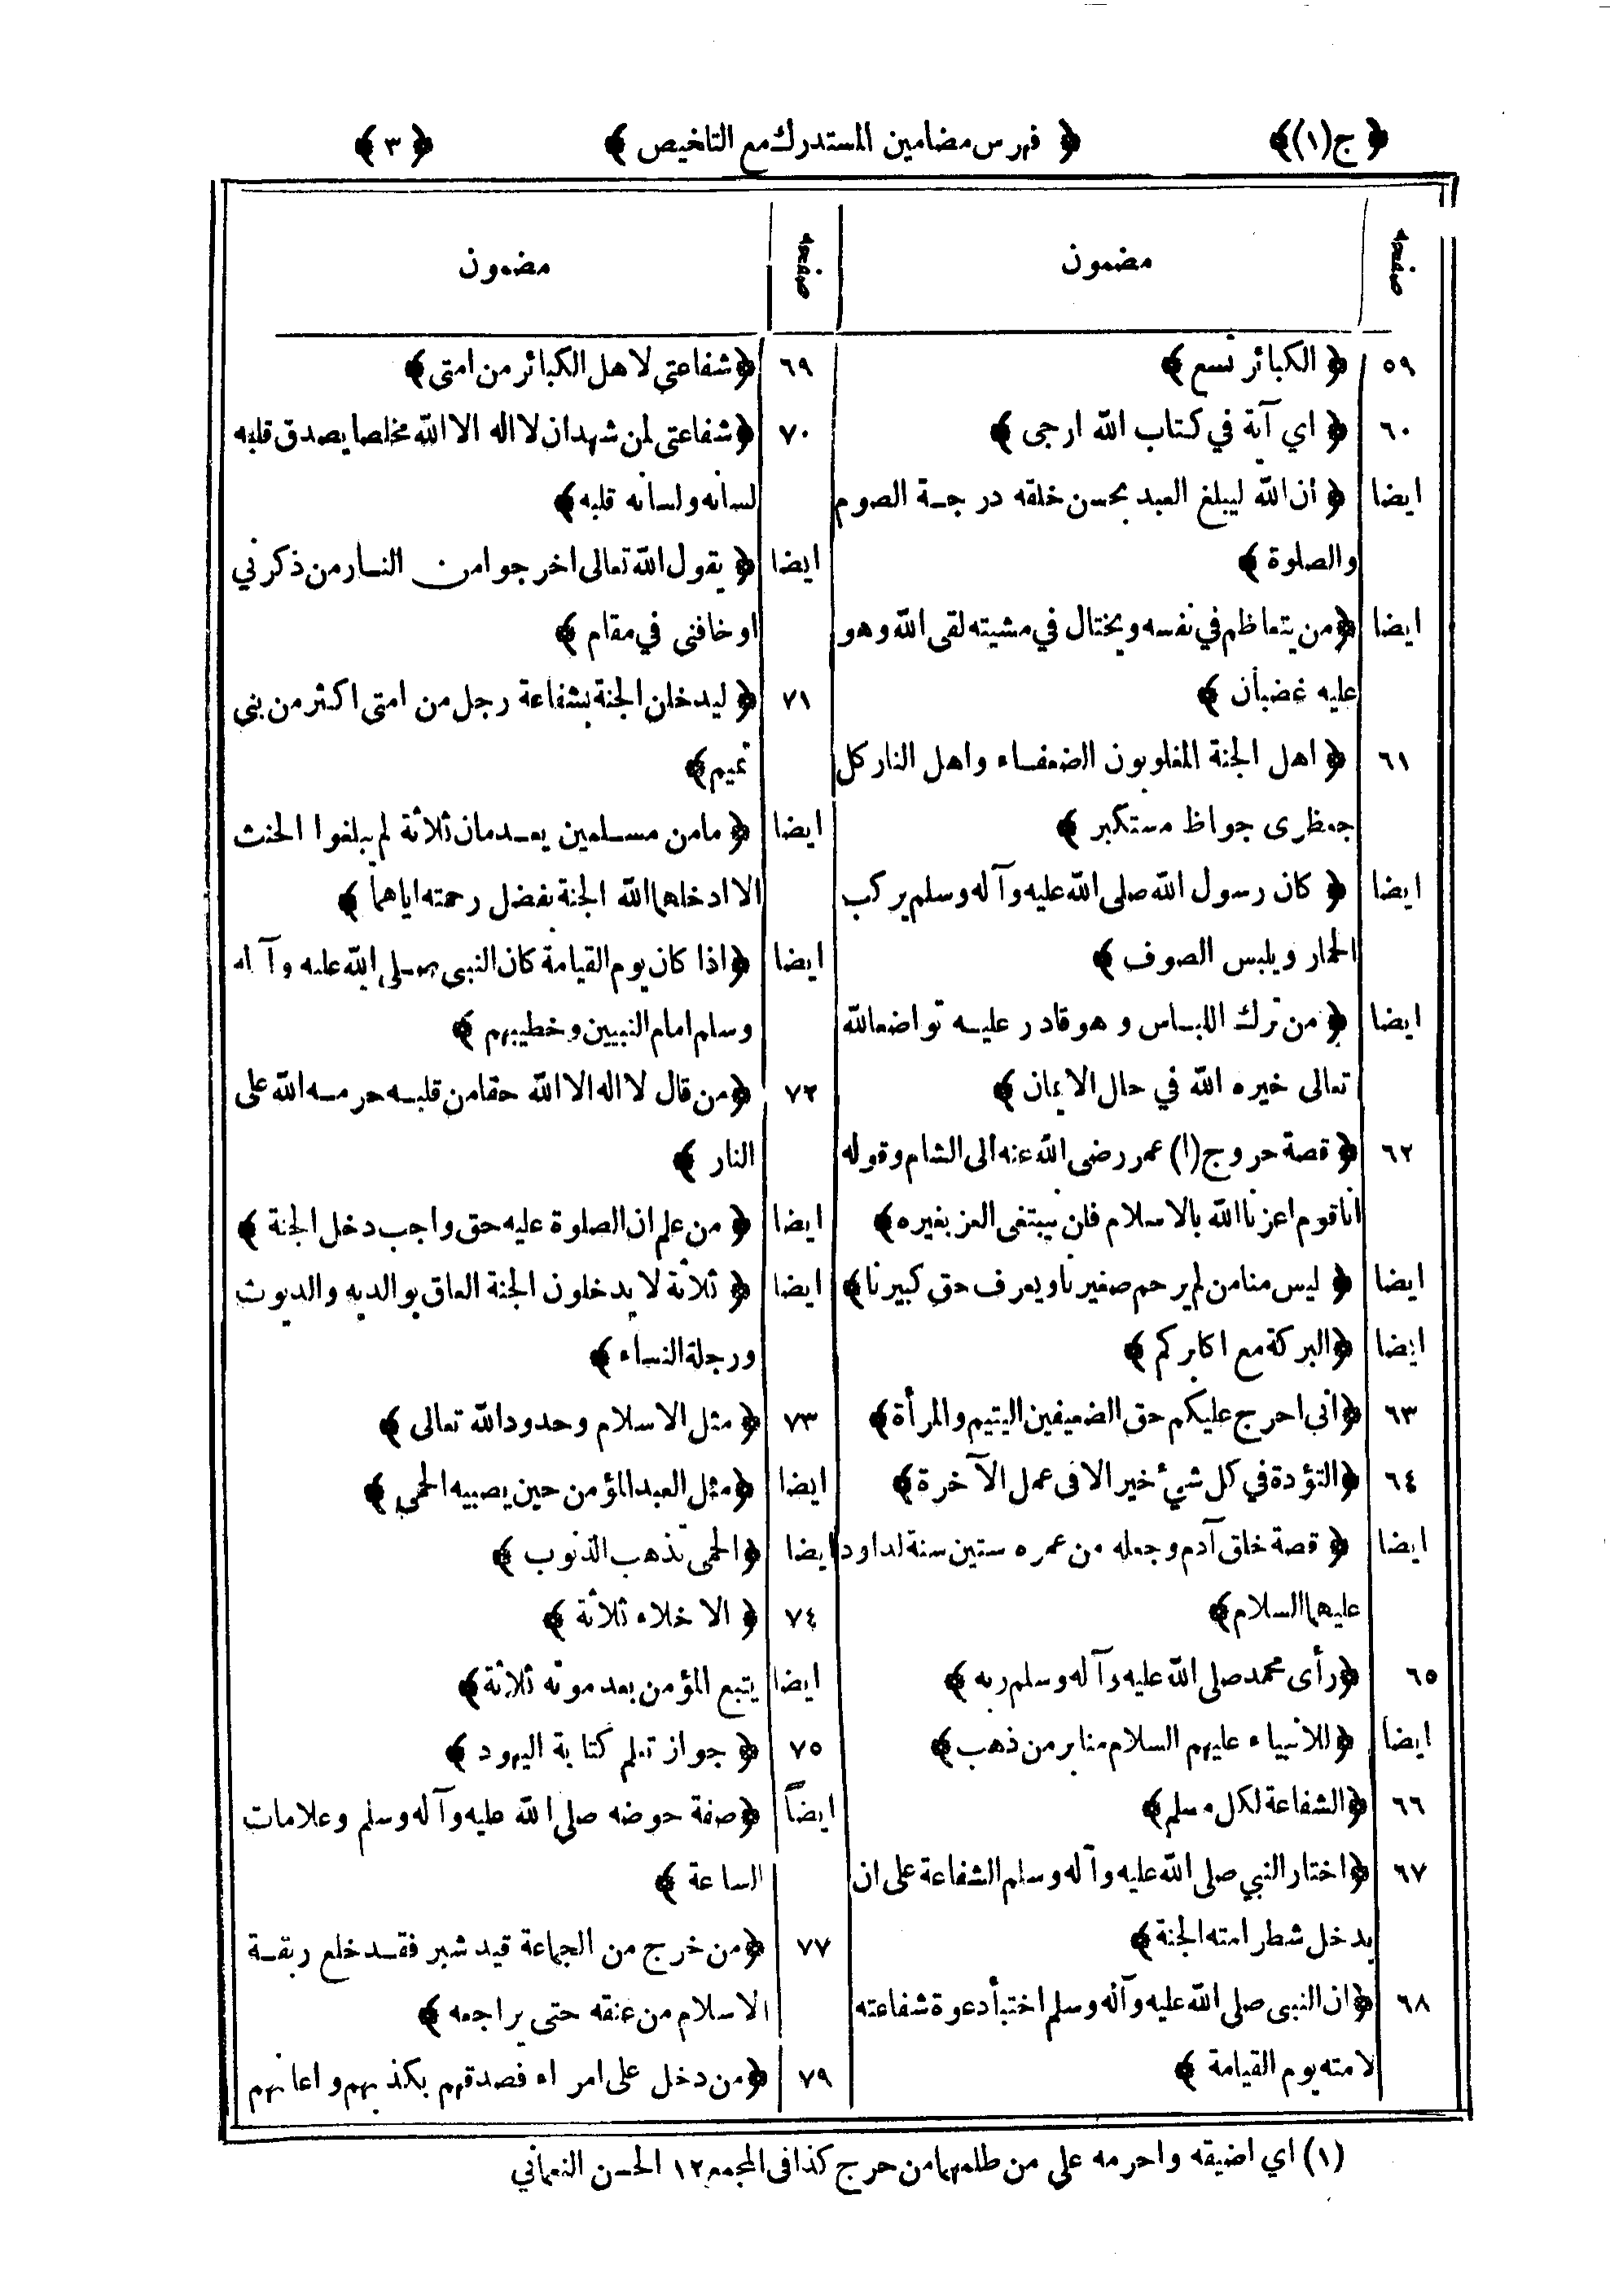 ﴿ ج (١) ﴾ ﴿ فهرس مضامين المستدرك مع التلخيص ﴾ ﴿ ٣ ﴾
صفحه مضمون
٥٩ ﴿ الكبائر تسع ﴾
٦٠ ﴿ اي آية في كتاب الله ارجى ﴾
ايضا ﴿ ان الله ليبلغ العبد بحسن خلقه درجة الصوم
والصلوة ﴾
ايضا ﴿ من يتعاظم في نفسه ويختال في مشيته لقى الله وهو
عليه غضبان ﴾
٦١ ﴿ اهل الجنة المغلوبون الضعفاء واهل النار كل
جعظرى جواظ مستكبر ﴾
ايضا ﴿ كان رسول الله صلى الله عليه وآله وسلم يركب
الحمار ويلبس الصوف ﴾
ايضا ﴿ من ترك اللباس وهو قادر عليه تواضعا لله
تعالى خيره الله في حال الايمان ﴾
٦٢ ﴿ قصة حروج (١) عمر رضى الله عنه الى الشام وقوله
انا قوم اعزنا الله بالاسلام فلن يبتغى العز بغيره ﴾
ايضا ﴿ ليس منا من لم يرحم صغيرنا ويعرف حق كبيرنا ﴾
ايضا ﴿ البركة مع اكابركم ﴾
٦٣ ﴿ انى احرج عليكم حق الضعيفين اليتيم والمرأة ﴾
٦٤ ﴿ التؤدة في كل شئ خير الا فى عمل الآخرة ﴾
ايضا ﴿ قصة خلق آدم وجعله من عمره ستين سنة لداود
عليهما السلام ﴾
٦٥ ﴿ رأى محمد صلى الله عليه وآله وسلم ربه ﴾
ايضا ﴿ للانبياء عليهم السلام منابر من ذهب ﴾
٦٦ ﴿ الشفاعة لكل مسلم ﴾
٦٧ ﴿ اختار النبي صلى الله عليه وآله وسلم الشفاعة على ان
يدخل شطر امته الجنة ﴾
٦٨ ﴿ ان النبى صلى الله عليه وآله وسلم اختبأ دعوة شفاعته
لامته يوم القيامة ﴾
صفحه مضمون
٦٩ ﴿ شفاعتي لاهل الكبائر من امتى ﴾
٧٠ ﴿ شفاعتى لمن شهد ان لا اله الا الله مخلصا يصدق قلبه
لسانه ولسانه قلبه ﴾
ايضا ﴿ يقول الله تعالى اخرجوا من النار من ذكرني
او خافنى في مقام ﴾
٧١ ﴿ ليدخلن الجنة بشفاعة رجل من امتى اكثر من بنى
تميم ﴾
ايضا ﴿ ما من مسلمين يعدمان ثلاثة لم يبلغوا الحنث
الا ادخلهما الله الجنة بفضل رحمته اياهما ﴾
ايضا ﴿ اذا كان يوم القيامة كان النبى صلى الله عليه وآله
وسلم امام النبيين وخطيبهم ﴾
٧٢ ﴿ من قال لا اله الا الله حقا من قلبه حرمه الله على
النار ﴾
ايضا ﴿ من علم ان الصلوة عليه حق واجب دخل الجنة ﴾
ايضا ﴿ ثلاثة لا يدخلون الجنة العاق بوالديه والديوث
ورجلة النساء ﴾
٧٣ ﴿ مثل الاسلام وحدود الله تعالى ﴾
ايضا ﴿ مثل العبد المؤمن حين يصيبه الحمى ﴾
ايضا ﴿ الحمى تذهب الذنوب ﴾
٧٤ ﴿ الاخلاء ثلاثة ﴾
ايضا يتبع المؤمن بعد موته ثلاثة ﴾
٧٥ ﴿ جواز تعلم كتابة اليهود ﴾
ايضاً ﴿ صفة حوضه صلى الله عليه وآله وسلم وعلامات
الساعة ﴾
٧٧ ﴿ من خرج من الجماعة قيد شبر فقد خلع ربقة
الاسلام من عنقه حتى يراجعه ﴾
٧٩ ﴿ من دخل على امراء فصدقهم بكذبهم واعانهم
(١) اي اضيقه واحرمه على من ظلمهما من حرج كذا فى المجمع ١٢ الحسن النعماني